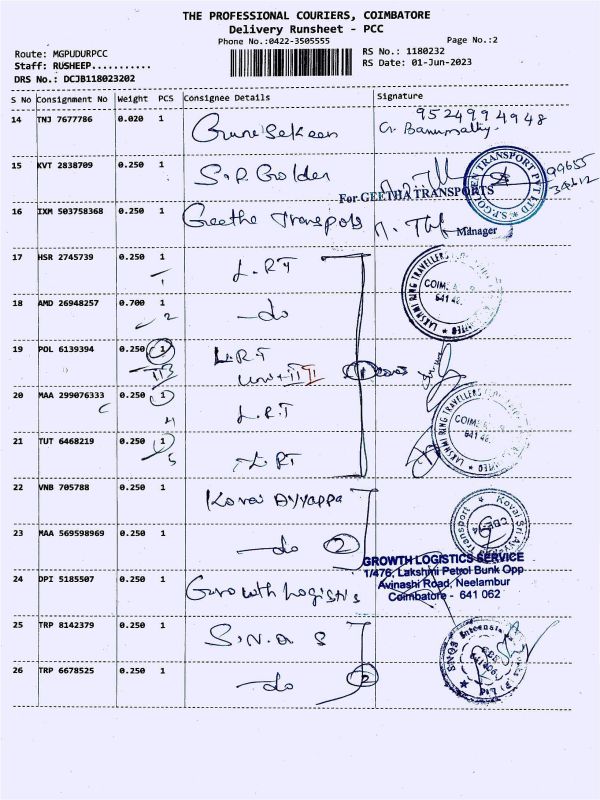 THE PROFESSIONAL COURIERS, COIMBATORE
Delivery Runsheet - PCC
Phone No.:0422-3505555
Page No.:2
Route: MGPUDURPCC
RS No.: 1180232
Staff: RUSHEEP...........
RS Date: 01-Jun-2023
DRS No.: DCJB118023202
S No Consignment No Weight PCS Consignee Details Signature
14 TNJ 7677786 0.020 1 9524994948
15 KVT 2838709 0.250 1 S.P. Golden
S.P.GOLDEN TRANSPORT PVT LTD
For GEETHA TRANSPORTS
16 IXM 503758368 0.250 1 Geetha Transports
Manager
17 HSR 2745739 0.250 1 L.R.T
1
LAKSHMI RING TRAVELLERS
COIMB
641 
18 AMD 26948257 0.700 1 -do
2
19 POL 6139394 0.250 1 L.R.T
3
Unit III
1
20 MAA 299076333 0.250 1 L.R.T
4
LAKSHMI RING TRAVELLERS
COIMB
641 
21 TUT 6468219 0.250 1 L.R.T
5
22 VNB 705788 0.250 1 Kovai Ayyappa
Kovai Sri Ayyappa Transport
23 MAA 569598969 0.250 1 -do 2
GROWTH LOGISTICS SERVICE
1/476, Lakshmi Petrol Bunk Opp
Avinashi Road, Neelambur
Coimbatore - 641 062
24 DPI 5185507 0.250 1 Growth Logistics
25 TRP 8142379 0.250 1 S.N.Q S
SNQS
26 TRP 6678525 0.250 1 -do 2